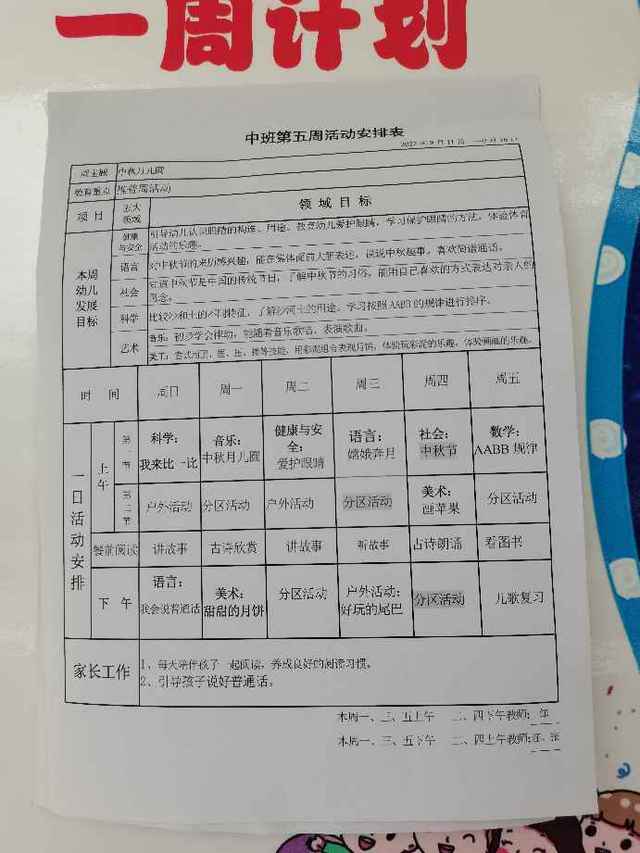 一周计划
中班第五周活动安排表
周主题 中秋月儿圆
教育重点 推普周活动
项目 五大领域 领域目标
本周幼儿发展目标
健康与安全 引导幼儿认识眼睛的构造、用途，教育幼儿爱护眼睛，学习保护眼睛的方法，体验体育
活动的乐趣。
语言 对中秋节的来历感兴趣，能在集体面前大胆表述，说说中秋趣事，喜欢简谱通话。
社会 知道中秋节是中国的传统节日，了解中秋节的习俗，能用自己喜欢的方式表达对亲人的
科学 比较沙和土的不同特征，了解沙河土的用途。学习按照AABB的规律进行排序。
艺术 音乐：初步学会律动，能随着音乐歌唱、表演歌曲。
时间 周日 周一 周二 周三 周四 周五
一日活动安排
上午 第一节 科学：我来比一比 音乐：中秋月儿圆 健康与安全：爱护眼睛 语言：嫦娥奔月 社会：中秋节 数学：AABB规律
第二节 户外活动 分区活动 户外活动 分区活动 美术：画苹果 分区活动
餐前阅读 讲故事 古诗欣赏 讲故事 听故事 古诗朗诵 看图书
下午 语言：我会说普通话 美术：甜甜的月饼 分区活动 户外活动：好玩的尾巴 分区活动 儿歌复习
家长工作 1、每天陪伴孩子一起阅读，养成良好的阅读习惯。
2、引导孩子说好普通话。
本周一、三、五上午 二、四下午教师：任
本周一、三、五下午 二、四上午教师：汪、张